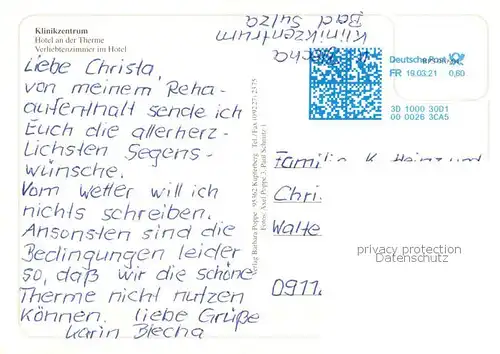 Klinikzentrum
Hotel an der Therme
Verliebtenzimmer im Hotel
Liebe Christa,
von meinem Reha-
aufenthalt sende ich
Euch die allerherz-
lichsten Segens-
wünsche.
Vom Wetter will ich
nichts schreiben.
Ansonsten sind die
Bedingungen leider
so, daß wir die schöne
Therme nicht nutzen
können. liebe Grüße
Karin Blecha
K. Blecha
Klinikzentrum
Bad Sulza
Verlag Barbara Poppe · 95362 Kupferberg · Tel./Fax 09227/2375
Fotos: Axel Poppe 3, Paul Schmitz 1
Deutsche Post
FR 19.03.21 0,60
3D 1000 30D1
00 0026 3CA5
Familie K. Heinz und
Chri
Walte
privacy protection
Datenschutz
0911